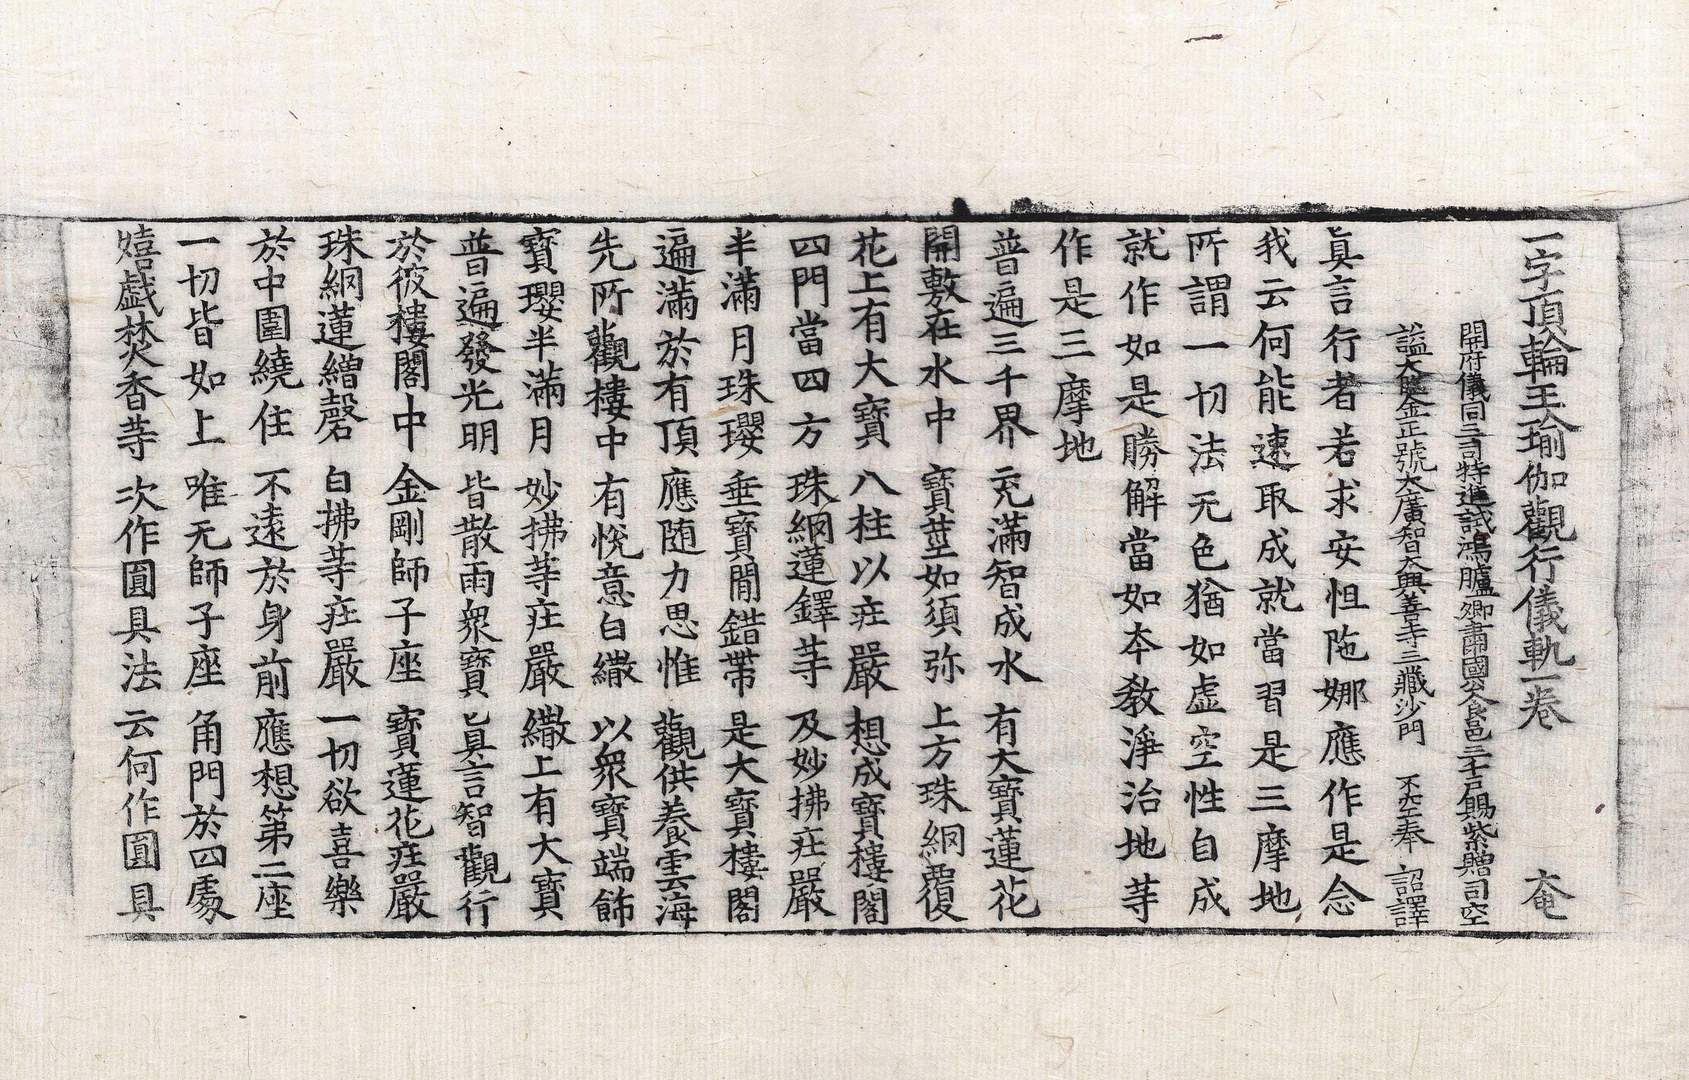 一字頂輪王瑜伽觀行儀軌一卷 奄
開府儀同三司特進試鴻臚卿肅國公食邑三千戶賜紫贈司空
謚大鑒正號大廣智大興善寺三藏沙門 不空奉 詔譯
眞言行者若求安怛陁娜應作是念
我云何能速取成就當習是三摩地
所謂一切法无色猶如虛空性自成
就作如是勝解當如本教淨治地䒭
作是三摩地
普遍三千界 充滿智成水 有大寶蓮花
開敷在水中 寶莖如須弥 上方珠網覆
花上有大寶 八柱以㽵嚴 想成寶樓閣
四門當四方 珠網蓮鐸䒭 及妙拂㽵嚴
半滿月珠瓔 垂寶間錯帶 是大寶樓閣
遍滿於有頂 應随力思惟 觀供養雲海
先所觀樓中 有悅意白繖 以衆寶端飾
寶瓔半滿月 妙拂䒭㽵嚴 繖上有大寶
普遍發光明 皆散雨衆寶 㫖眞言智觀行
於彼樓閣中 金剛師子座 寶蓮花㽵嚴
珠網蓮繒磬 白拂䒭㽵嚴 一切欲喜樂
於中圍繞住 不遠於身前 應想第二座
一切皆如上 唯无師子座 角門於四處
嬉戯焚香䒭 次作圓具法 云何作圓具